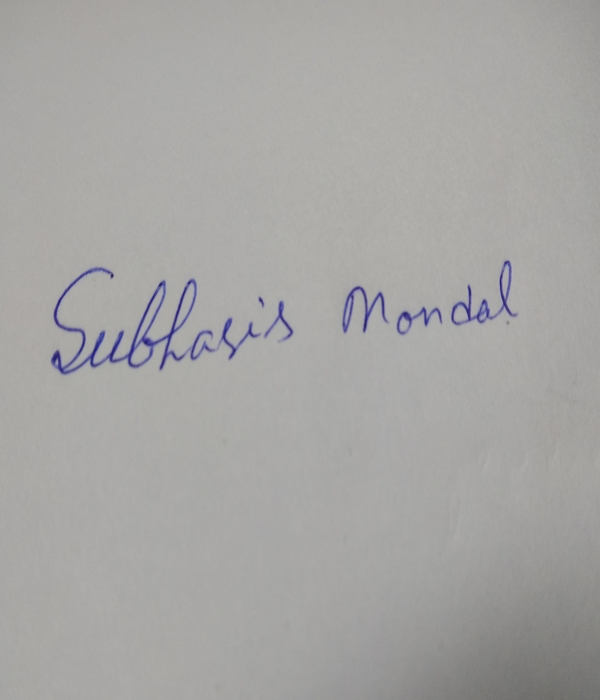 Subhasis Mondal